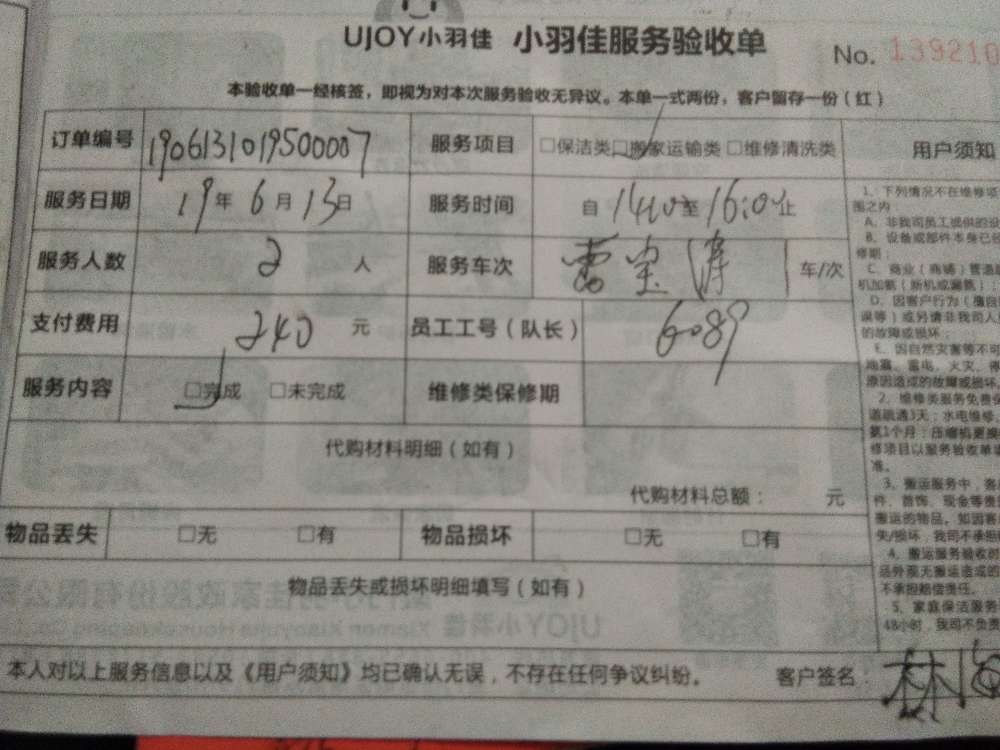 UJOY小羽佳 小羽佳服务验收单
No. 139210
本验收单一经核签，即视为对本次服务验收无异议。本单一式两份，客户留存一份（红）
订单编号 1906131019500007 服务项目 □保洁类□搬家运输类 □维修清洗类 用户须知
服务日期 19年 6月 13日 服务时间 自 14:10至 16:0止
服务人数 2 人 服务车次 雷宝涛 车/次
支付费用 240 元 员工工号（队长） 6089
服务内容 □完成 □未完成 维修类保修期
代购材料明细（如有）
代购材料总额： 元
物品丢失 □无 □有 物品损坏 □无 □有
物品丢失或损坏明细填写（如有）
本人对以上服务信息以及《用户须知》均已确认无误，不存在任何争议纠纷。 客户签名： 林
1、下列情况不在维修项
围之内
A、非我司员工提供的设
B、设备或部件本身已经
修期；
C、商业（商铺）管道
机加氨（新机或漏氨）；
D、因客户行为（擅自
误等）或另请非我司人员
的故障或损坏；
E、因自然灾害等不可
地震、雷电、火灾、停
原因造成的故障或损坏。
2、维修类服务免费保
道疏通3天；水电维修、
氨1个月；压缩机更换
修项目以服务验收单
准。
3、搬运服务中，客
件、首饰、现金等贵
搬运的物品，如因客
失/损坏，我司不承担
4、搬运服务验收时
品外观无搬运造成的
不承担赔偿责任。
5、家庭保洁服务
48小时，我司不负责